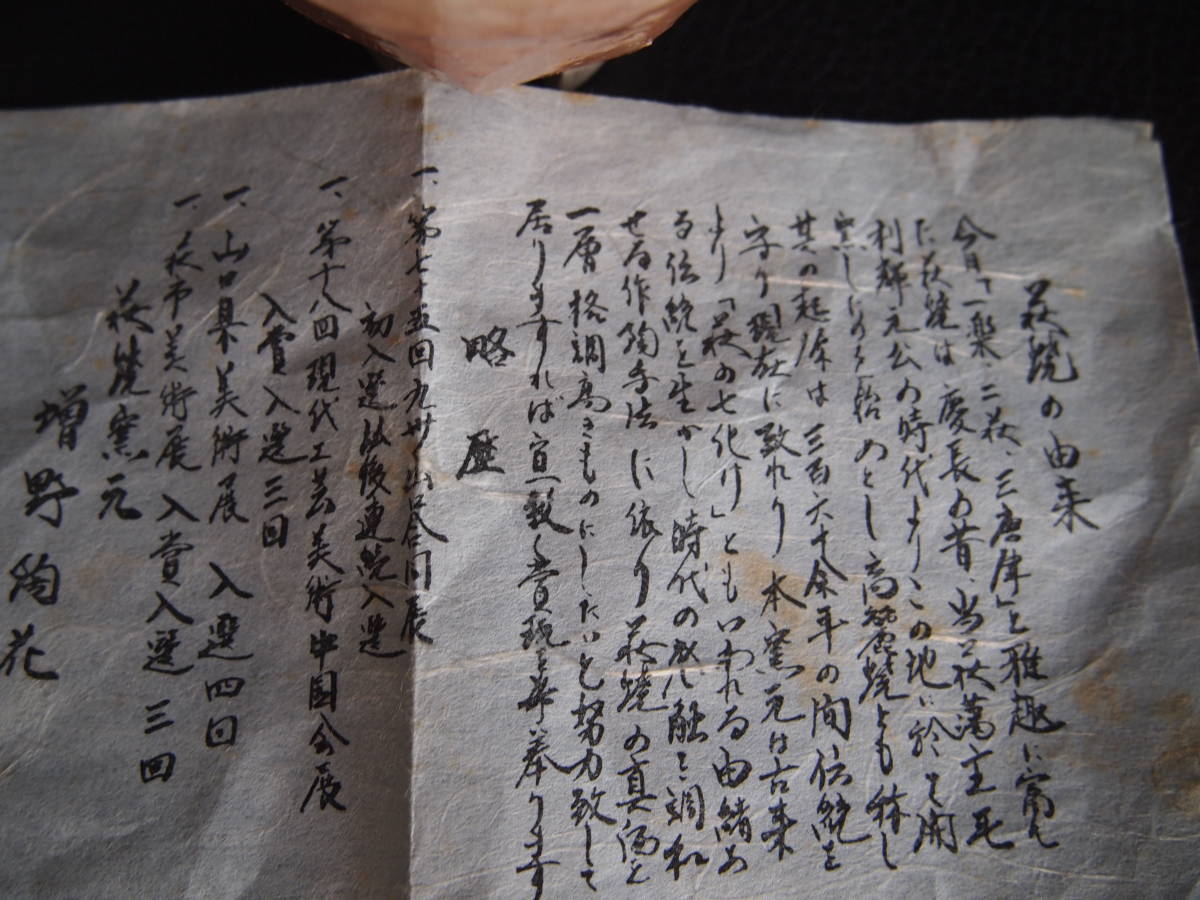 萩焼の由来
今日「一楽、二萩、三唐津」と雅趣に富ん
だ萩焼は慶長の昔、当萩藩主毛
利輝元公の時代よりこの地に於て開
窯したのを始めとし高麗焼とも称し
其の起原は三百六十余年の間伝統を
守り現在に致れり 本窯元は古来
より「萩の七化け」ともいわれる由緒あ
る伝統を生かし時代の感触と調和
せる作陶手法に依り萩焼の真価を
一層格調高きものにしたいと努力致して
居りますれば宜敷く賞玩を希い奉ります
略歴
一、第七十五回九州山口
初入選以後連続入選
一、第十八回現代工芸美術中国会展
入賞入選三回
一、山口県美術展 入選四回
一、萩市美術展 入賞入選三回
萩焼窯元
増野陶花